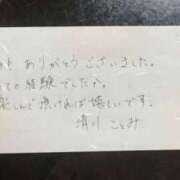 ありがとうございました。
ての経験でしたが、
楽しんで頂ければ嬉しいです。
境川 ことみ